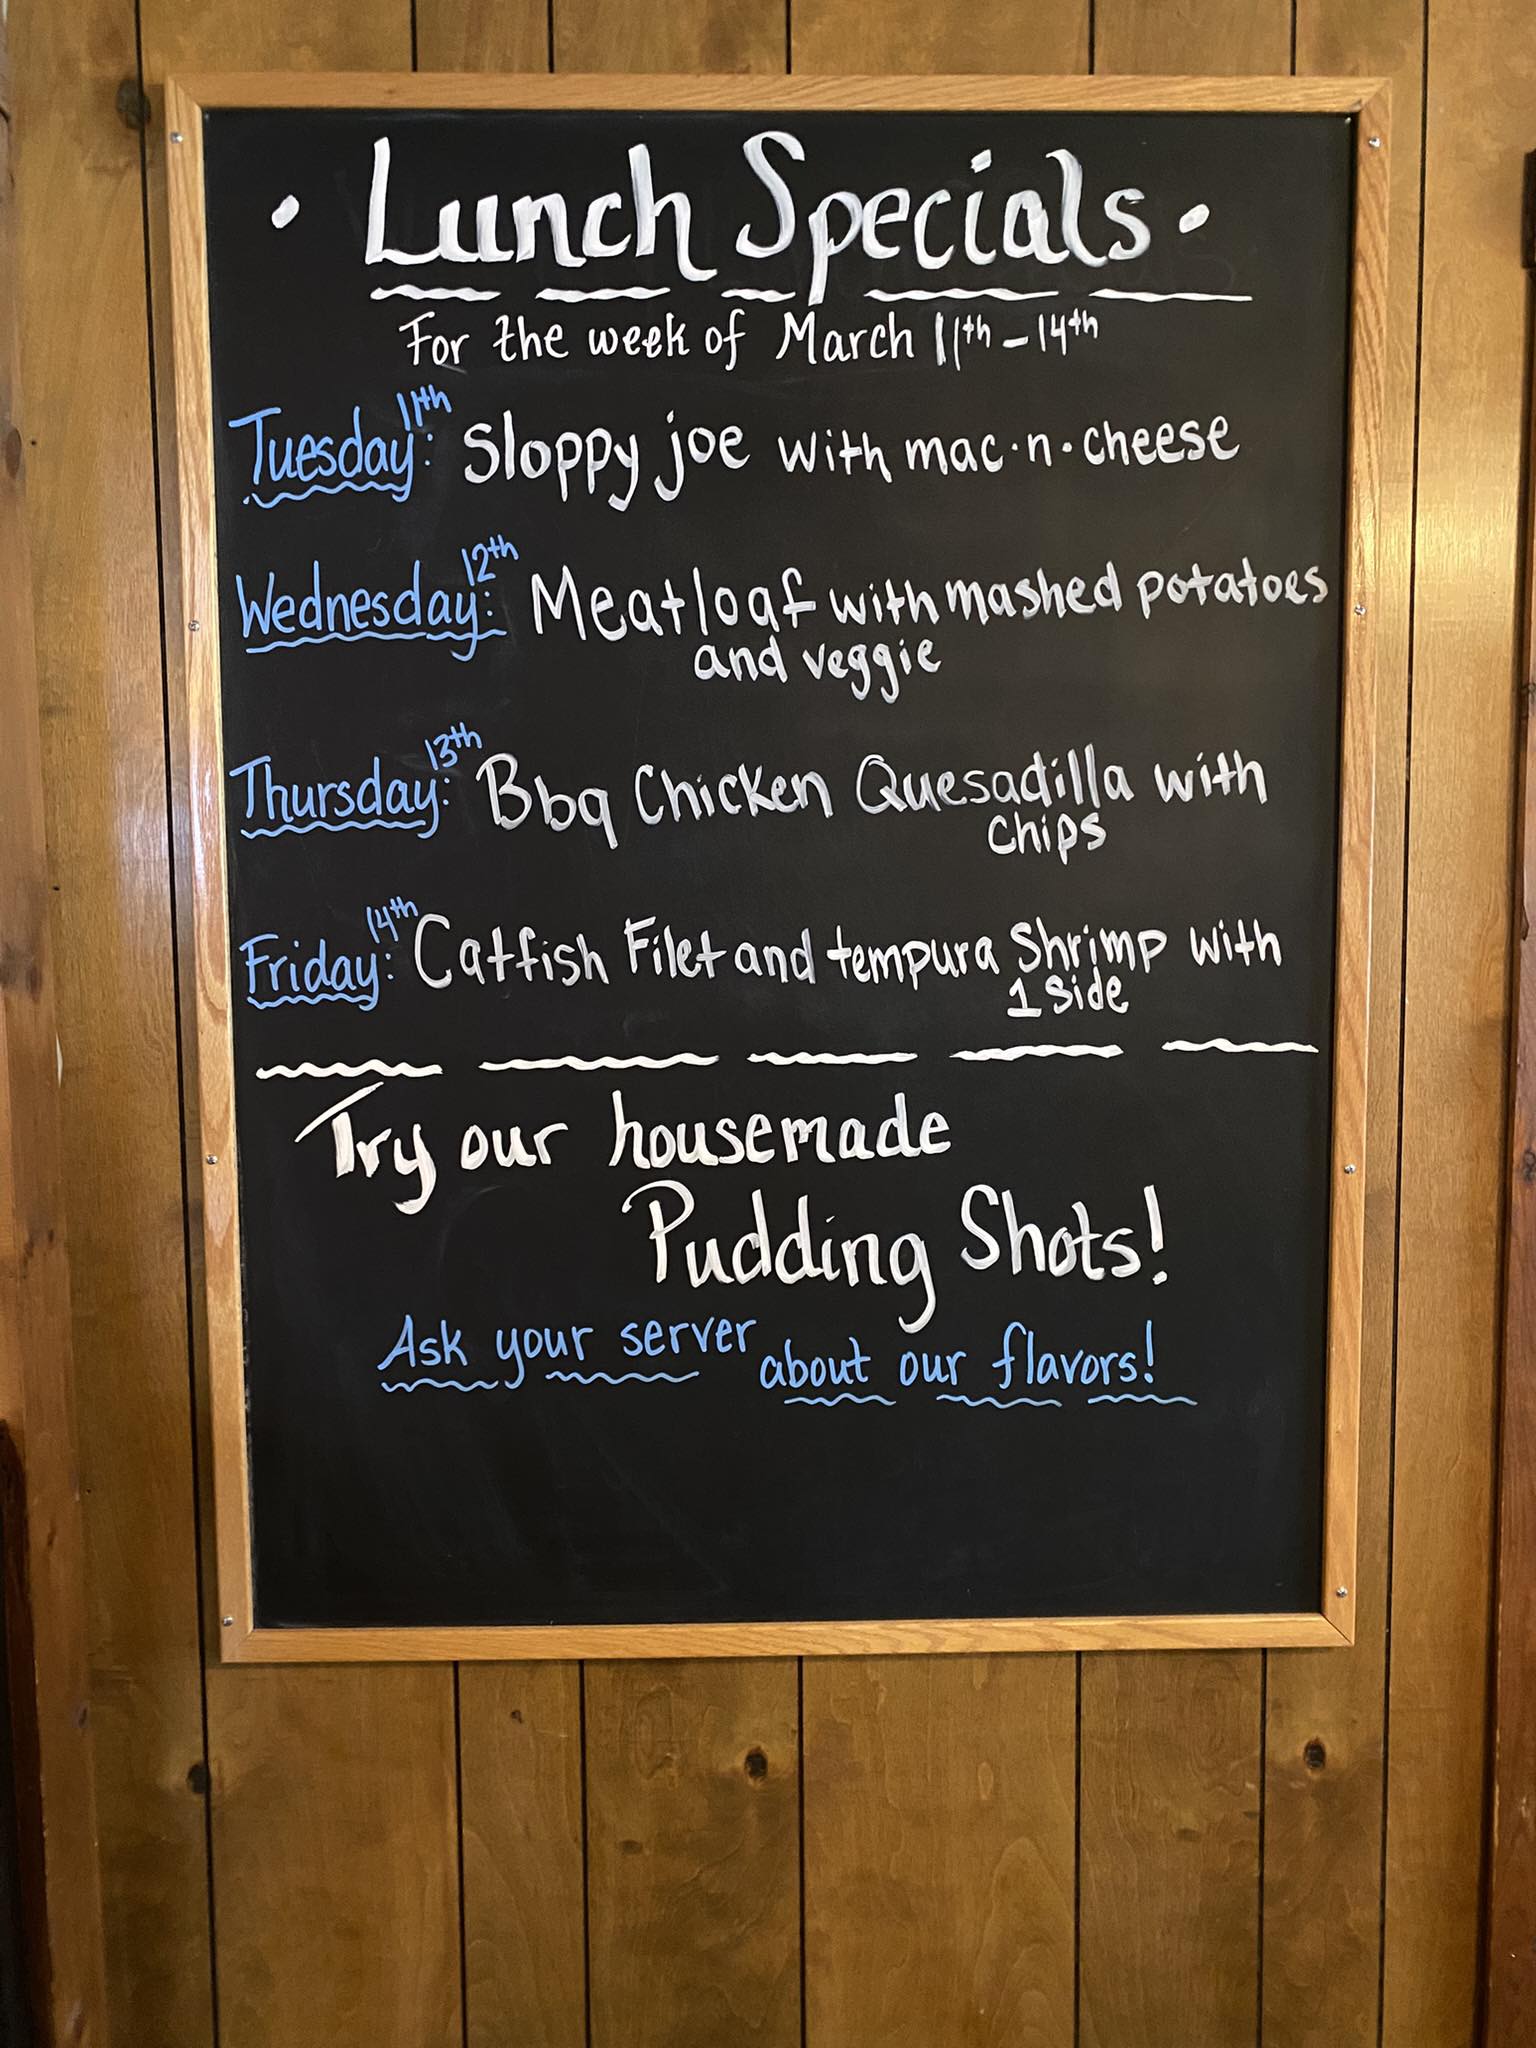 • Lunch Specials •
For the week of March 11th - 14th
Tuesday 11th: Sloppy joe with mac·n·cheese
Wednesday 12th: Meatloaf with mashed potatoes
and veggie
Thursday 13th: Bbq Chicken Quesadilla with
chips
Friday 14th: Catfish Filet and tempura Shrimp with
1 Side
Try our housemade
Pudding Shots!
Ask your server about our flavors!